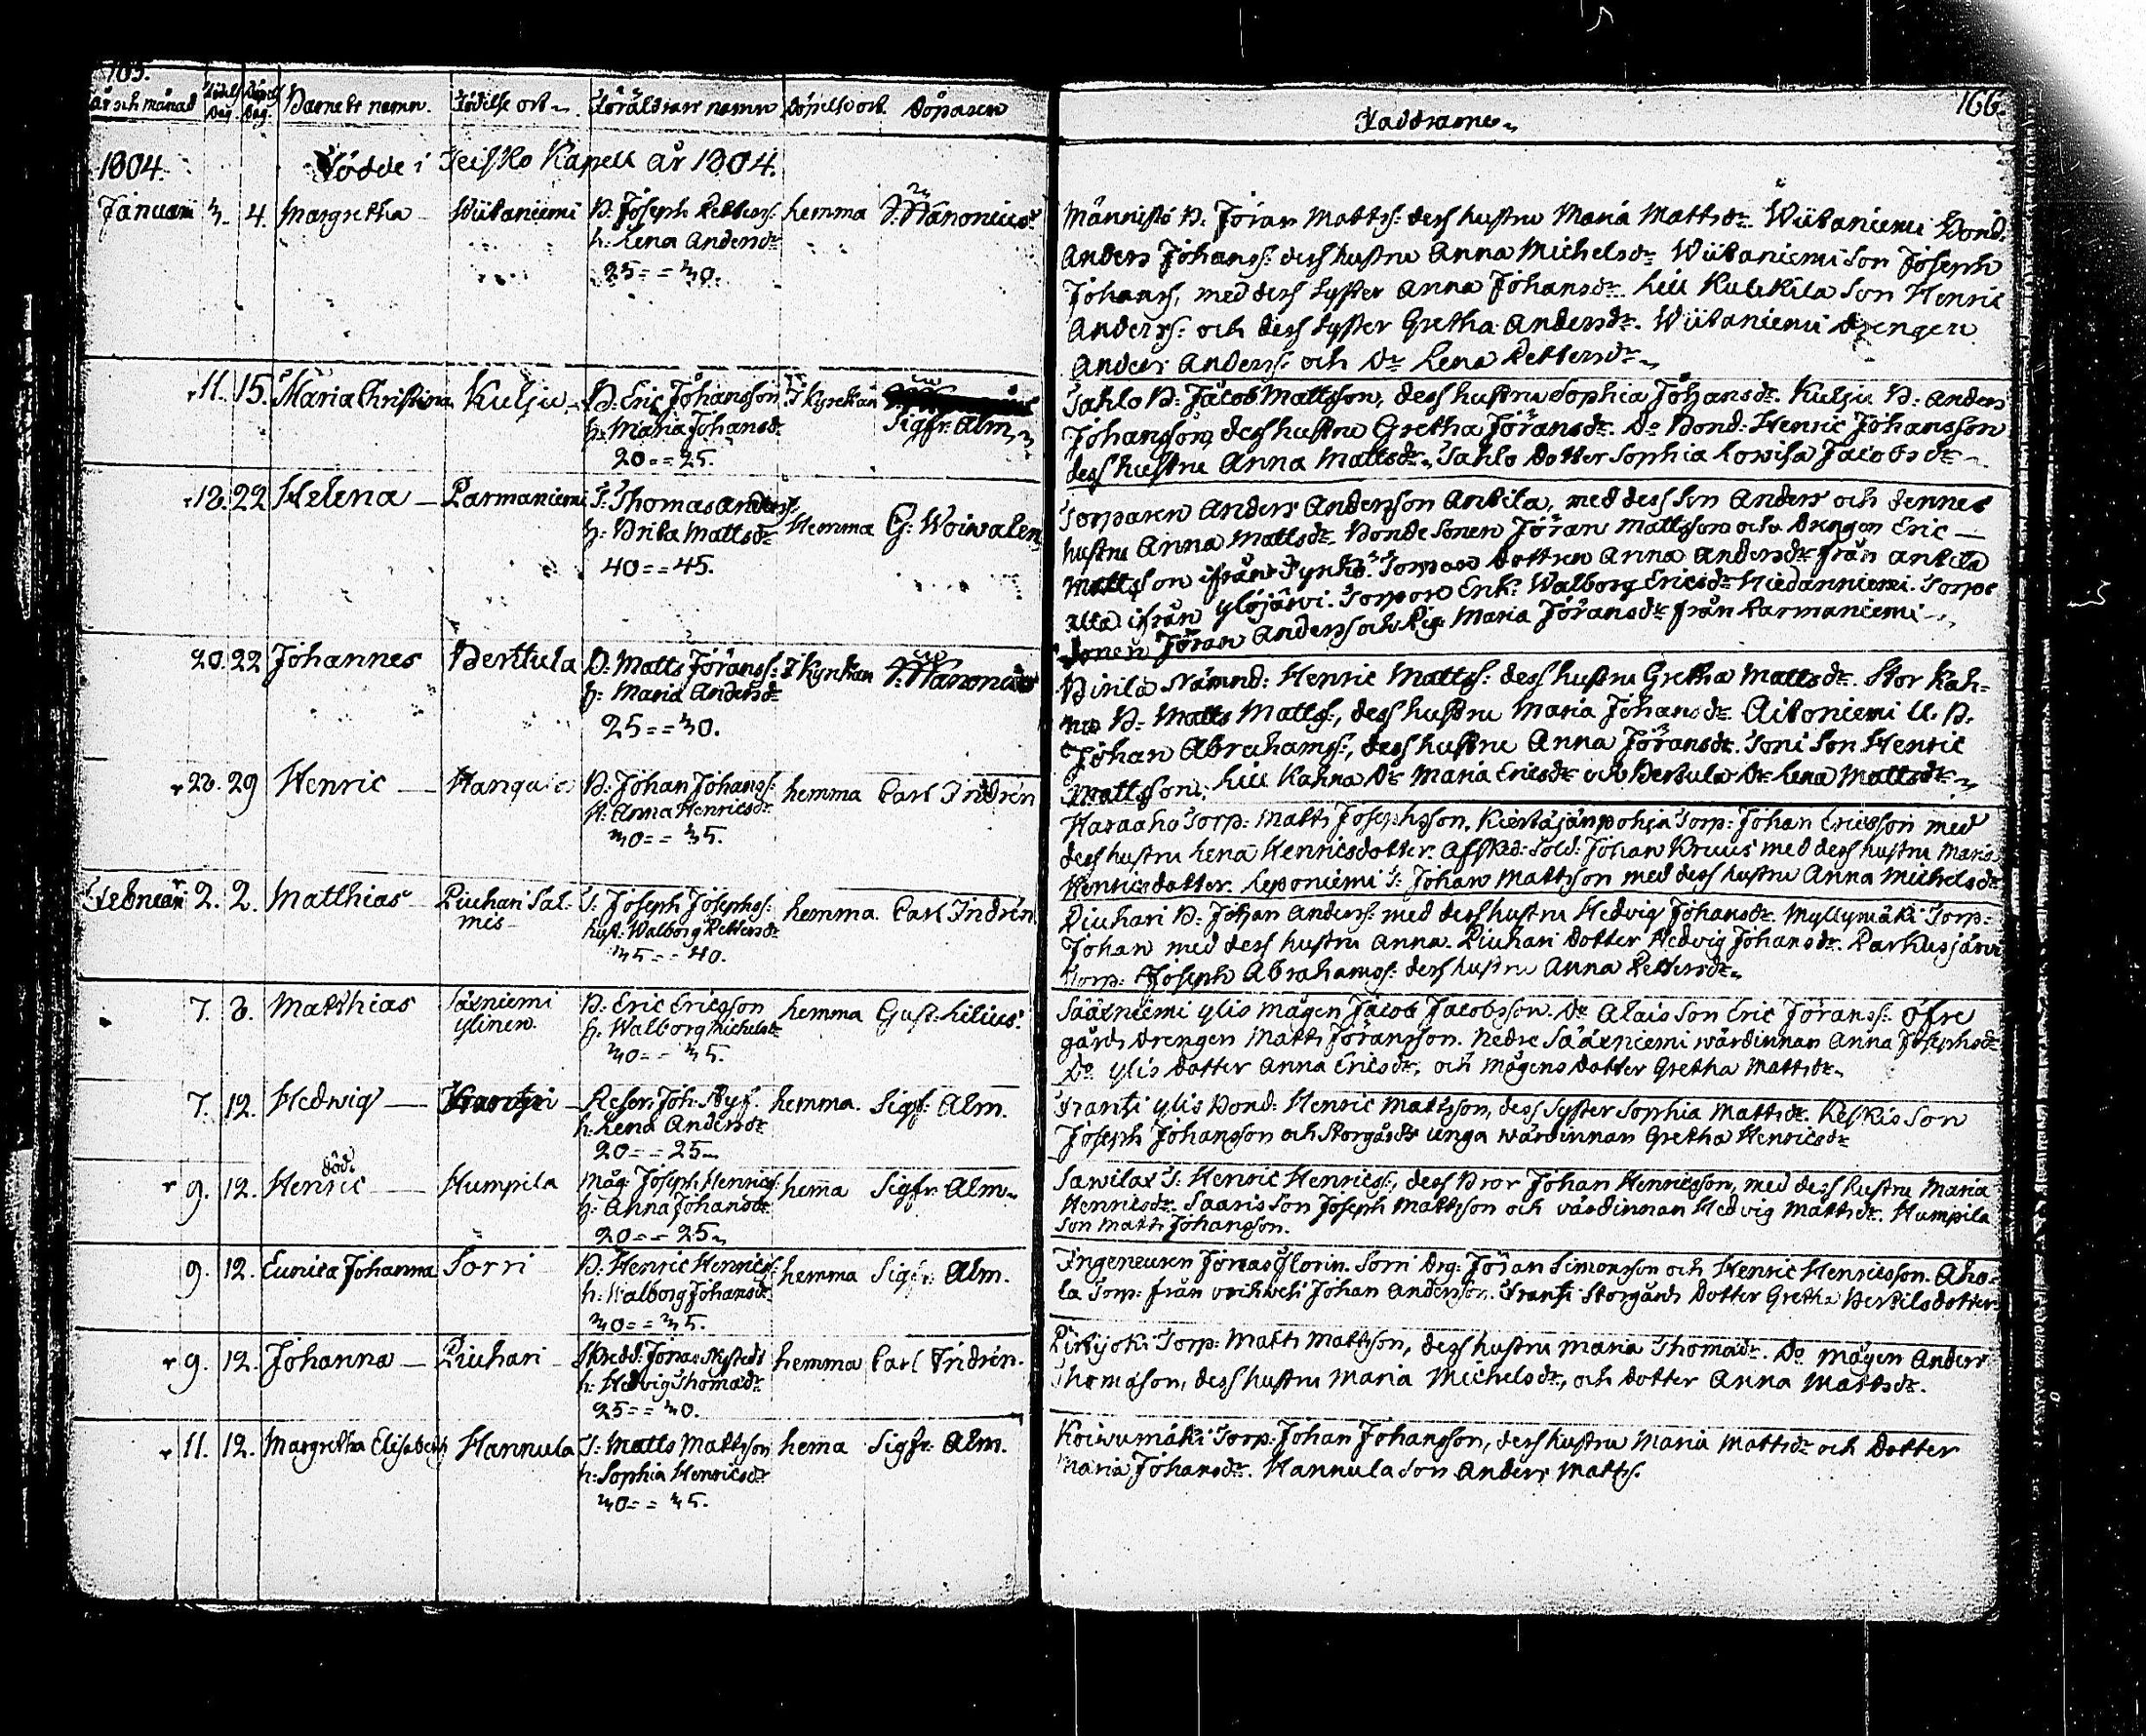 165.
år och månad Födels dag Döpels dag. Barnets namn. Födelse ort. Föräldrars namn Döpelse ort. Döparen
1804. Födde i Teisko Kapell år 1804.
Januarii 3. 4. Margretha Wiitaniemi B. Joseph Petters: hemma
h: Lena Andersdr
25 = = 30.
11. 15. Maria Christina Kulju B: Eric Johansson I Kyrckan
h: Maria Johansdr Sigfr: Alm.
20 = = 25.
18. 22 Helena Parmaniemi T: Thomas Anderss.
h: Brita Mattsdr Hemma G: Woiwalen
40 = = 45.
20. 22 Johannes Berttula B: Matts Jöranss: I Kyrckan
h: Maria Andersdr
25 = = 30.
28. 29 Henric B: Johan Johanss: hemma Carl Indrén
h: Anna Henricsdr
30 = = 35.
Februarii 2. 2. Matthias Piuhari Sal- T: Joseph Josephss: hemma. Carl Indrén
mis hust: Walborg Pettersdr
35 = = 40.
7. 8. Matthias Säxniemi B: Eric Ericsson hemma Gust: Lilius.
ylinen. h: Walborg Michelsdr
30 = = 35.
7. 12. Hedwig Reserv: Joh: Ryf. hemma. Sigf: Alm.
h: Lena Andersdr
20 = = 25
död.
9. 12. Henric Humpila Måg: Joseph Henricss: hema Sigfr: Alm
h: Anna Johansdr
20 = = 25
9. 12. Eunica Johanna Sorri B: Henric Henricss: hemma Sigfr: Alm.
h: Walborg Johansdr
30 = = 35.
9. 12. Johanna Piuhari Skredd: Jonas Nystedt hemma Carl Indrén.
h: Hedvig Thomædr
25 = = 30.
11. 12. Margretha Elisabeth Hannula T: Matts Mattsson hema Sigfr: Alm.
h: Sophia Henricsdr
30 = = 35.
166.
Faddrarne
Männistö B: Jöran Mattss: dess hustru Maria Mattsdr. Wiitaniemi Bond:
Anders Johanss: dess hustru Anna Michelsdr Wiitaniemi son Joseph
Johanss, med dess Syster Anna Johansdr. Lill Kulckila Son Henric
Anderss: och dess Syster Gretha Andersdr. Wiitaniemi drengen
Anders Anderss: och Do Lena Pettersdr
B: Jacob Mattsson, dess hustru Sophia Johansdr. Kulju B: Anders
Johansson, dess hustru Gretha Jöransdr. Do Bond: Henric Johansson
dess hustru Anna Mattsdr. Dotter Sophia Lowisa Jacobsdr
Torparen Anders Andersson Antila, med dess Son Anders och dennes
hustru Anna Mattsdr. Bonde Sonen Jöran Mattsson och Drengen Eric
Mattsson ifrån Torpare Dottren Anna Andersdr från Antila
alla ifrån Ylöjärvi. Torpare Enk: Walborg Ericsdr Hiedanniemi. Torpe
Sonen Jöran Anderss och Pig: Maria Jöransdr från Parmaniemi
Nämnd: Henric Mattss: dess hustru Gretha Mattsdr. Stor Kah-
na B: Matts Mattss:, dess hustru Maria Johansdr. Aitoniemi U. B.
Johan Abrahamss:, dess hustru Anna Jöransdr. Son Henric
Mattsson. Lill Kahna Dr Maria Ericsdr och Bertula Dr Lena Mattsdr
Haraaho Torp: Matts Josephsson. Torp: Johan Ericsson med
dess hustru Lena Henricsdotter. Afsked: Sold: Johan Kruus med dess hustru Maria
Henricsdotter. Leponiemi T: Johan Mattsson med dess hustru Anna Michelsdr
Piuhari B: Johan Anderss: med dess hustru Hedvig Johansdr. Myllymäki Torp:
Johan med dess hustru Anna. Piuhari Dotter Hedvig Johansdr. Parkusjärvi
Torp: Joseph Abrahamss: dess hustru Anna Pettersdr
Sääxniemi ylis mågen Jacob Jacobsson. Do Alais Son Eric Jöranss: öfre
gårds Drengen Matts Jöransson. Nedre Sääxniemi wärdinnan Anna Josephsdr
Do ylis Dotter Anna Ericsdr, och mågens dotter Gretha Mattsdr
Frantsi ylis Bond: Henric Mattsson, dess Syster Sophia Mattsdr. Keskis Son
Joseph Johansson och Storgårds unga wärdinnan Gretha Henricsdr
Sawilax T: Henric Henricss:, dess Bror Johan Henricsson, med dess hustru Maria
Henricsdr. Saaris Son Joseph Mattsson och värdinnan Hedvig Mattsdr. Humpila
Son Matts Johansson.
Ingeneuren Jonas Florin. Sorri Drg: Jöran Simonsson och Henric Henricsson. Aho-
la Torp: från Orihvesi Johan Andersson. Frantsi Storgårds Dotter Gretha Bertilsdotter
Torp: Matts Mattsson, dess hustru Maria Thomædr. Do Mågen Anders
Thomason, dess hustru Maria Michelsdr, och dotter Anna Mattsdr.
Koiwumäki Torp: Johan Johansson, dess hustru Maria Mattsdr och Dotter
Maria Johansdr. Hannula Son Anders Mattss.